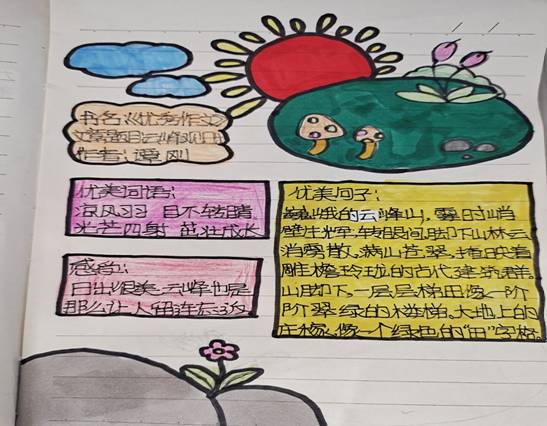 书名《优秀作文》
文章题目云峰观日
作者：谭刚
优美词语：
凉风习习 目不转睛
光芒四射 茁壮成长
感受：
日出很美，云峰也是
那么让人留连忘返
优美句子：
巍峨的云峰山，霎时峭
壁生辉，转眼间，脚下山林云
消雾散，满山苍翠，掩映着
雕檐玲珑的古代建筑群。
山脚下，一层层梯田像一阶
阶翠绿的楼梯，大地上的
庄稼，像一个绿色的“田”字格